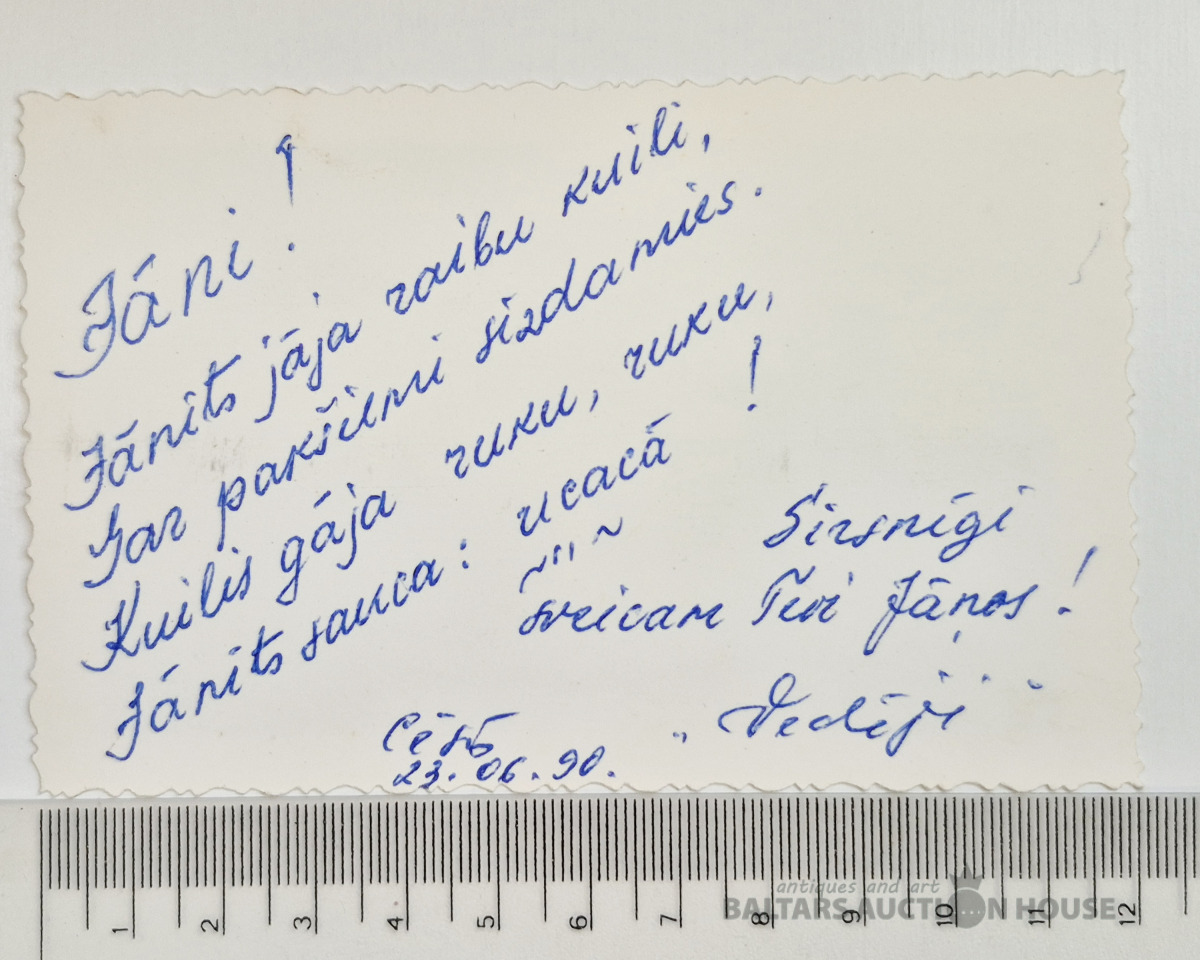 Jāni!
Jānīts jāja raibu kuili,
Gar pakšiem sizdamies.
Kuilis gāja ruku, ruku,
Jānīts sauca: ucacā!
Sirsnīgi
sveicam Tevi Jāņos!
"Vedēji"
Cēsīs
23.06.90.
1 2 3 4 5 6 7 8 9 10 11 12
antiques and art
BALTARS AUCTION HOUSE